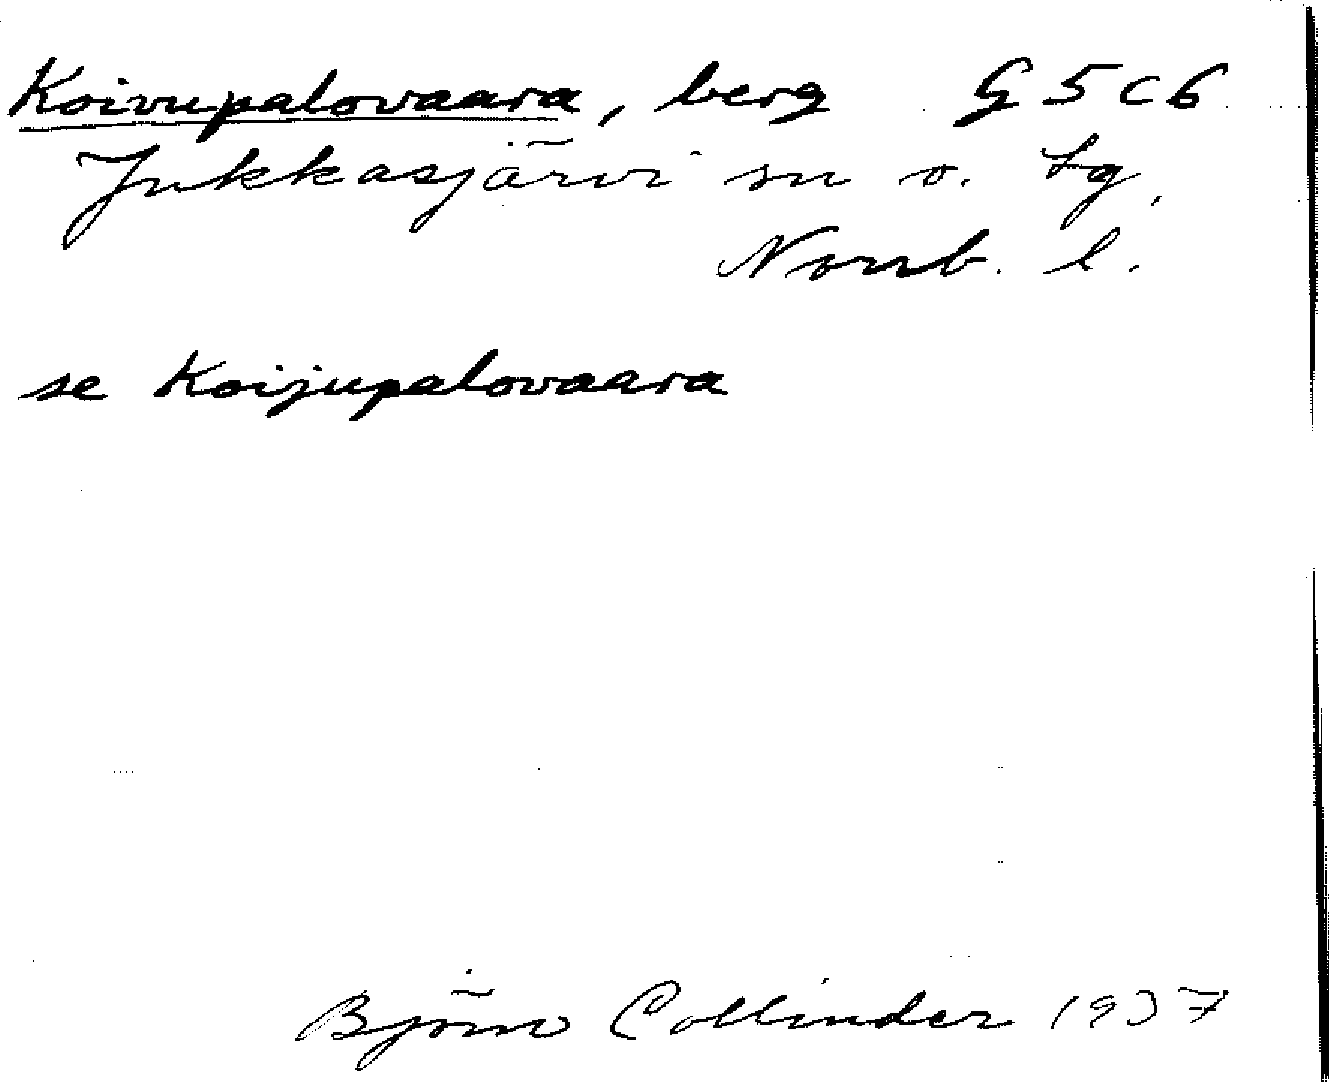 Koivupalovaara, berg G5c6
Jukkasjärvi sn o. tg,
Norrb. l.
se Koijupalovaara
Björn Collinder 1937